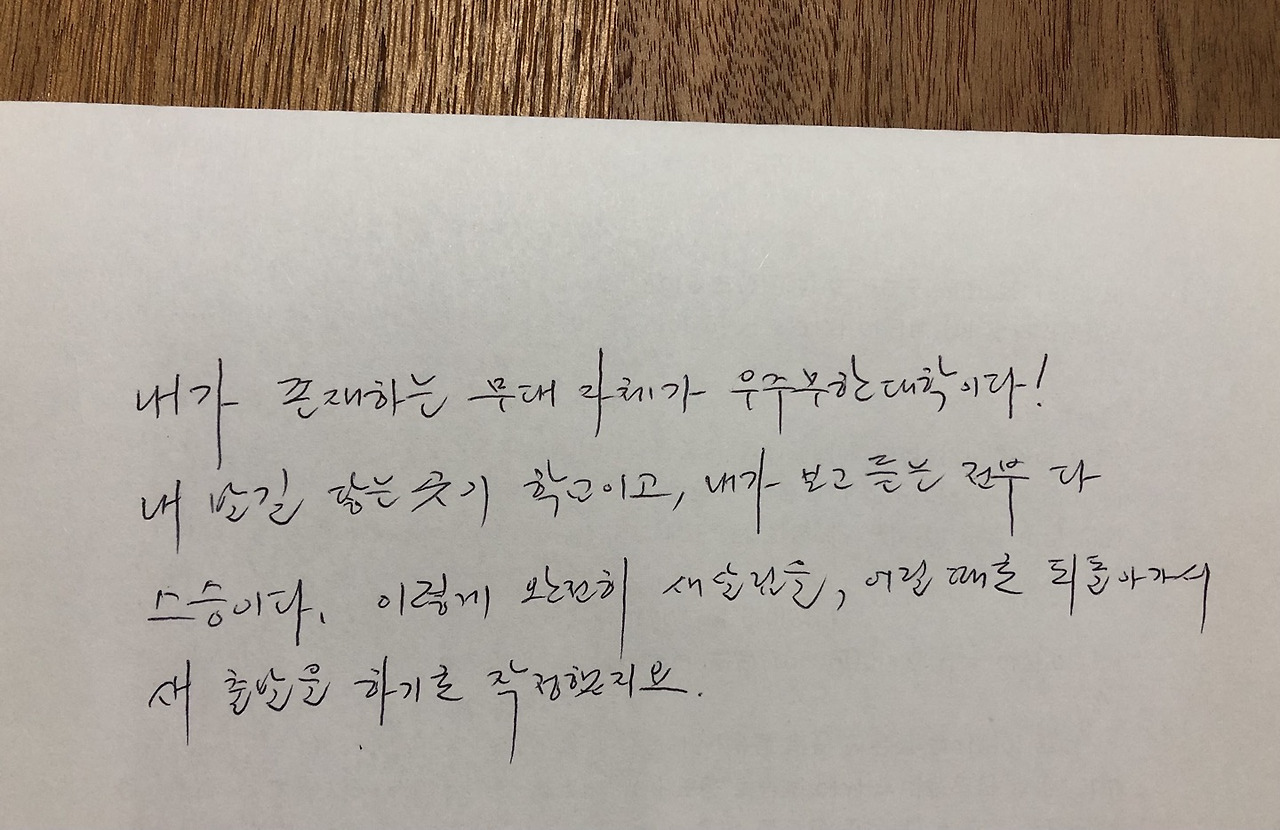 내가 존재하는 무대 자체가 우주무한대학이다!
내 발길 닿는 곳이 학교이고, 내가 보고 듣는 전부 다
스승이다. 이렇게 완전히 새살림을, 어릴 때로 되돌아가서
새 출발을 하기로 작정했지요.